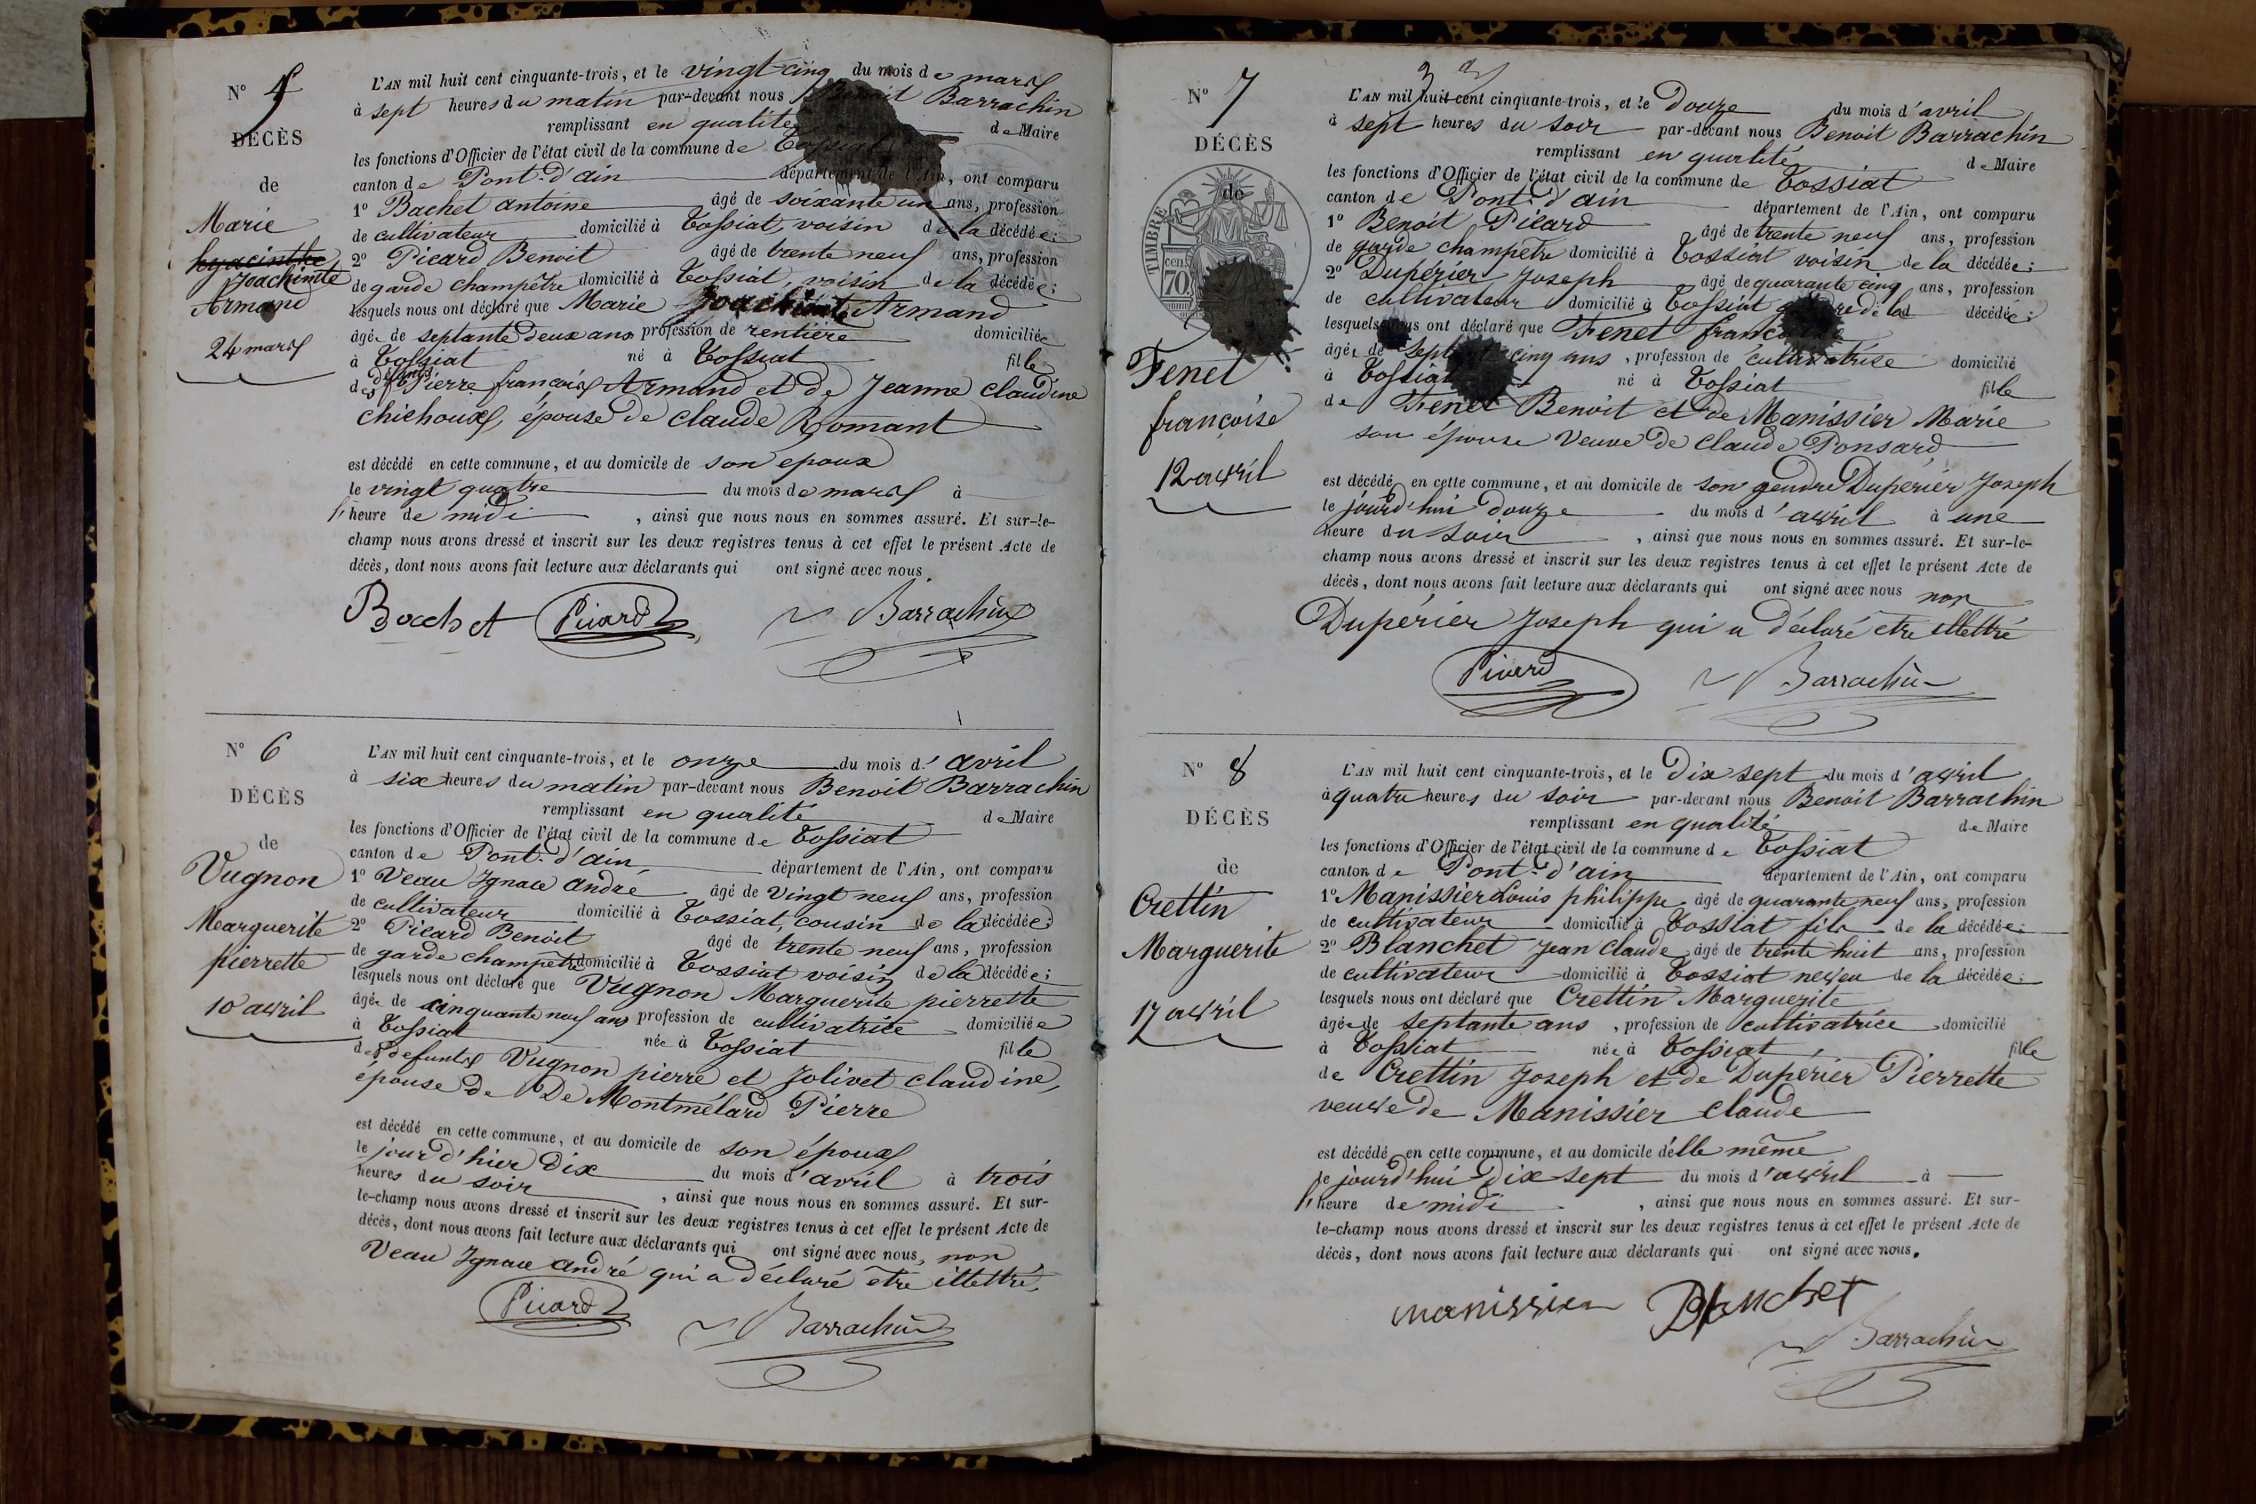 N° 5
DÉCÈS
de
Marie
hyacinthe
Joachimte
Armand
24 mars
L'AN mil huit cent cinquante-trois, et le vingt-cinq du mois de mars
à sept heures du matin par-devant nous Benoit Barrachin
remplissant en qualité de Maire
les fonctions d'Officier de l'état civil de la commune de Tossiat
canton de Pont-d'ain département de l'Ain, ont comparu
1° Bachet antoine âgé de soixante un ans, profession
de cultivateur domicilié à Tossiat, voisin de la décédée;
2° Picard Benoit âgé de trente neuf ans, profession
de garde champêtre domicilié à Tossiat, voisin de la décédée;
lesquels nous ont déclaré que Marie Joachimte Armand
âgée de septante deux ans profession de rentière domiciliée
à Tossiat né à Tossiat fille
des défunts Pierre françois Armand et de Jeanne claudine
chichoux, épouse de claude Romant
est décédé en cette commune, et au domicile de son epoux
le vingt quatre du mois de mars à
l'heure de midi , ainsi que nous nous en sommes assuré. Et sur-le-
champ nous avons dressé et inscrit sur les deux registres tenus à cet effet le présent Acte de
décès, dont nous avons fait lecture aux déclarants qui ont signé avec nous.
Bachet Picard Barrachin
N° 6
DÉCÈS
de
Vugnon
Marguerite
pierrette
10 avril
L'AN mil huit cent cinquante-trois, et le onze du mois d'avril
à six heures du matin par-devant nous Benoit Barrachin
remplissant en qualité de Maire
les fonctions d'Officier de l'état civil de la commune de Tossiat
canton de Pont-d'ain département de l'Ain, ont comparu
1° Veau Ignace andré âgé de vingt neuf ans, profession
de cultivateur domicilié à Tossiat, cousin de la décédée;
2° Picard Benoit âgé de trente neuf ans, profession
de garde champetre domicilié à Tossiat voisin de la décédée;
lesquels nous ont déclaré que Vugnon Marguerite pierrette
âgée de cinquante neuf ans profession de cultivatrice domiciliée
à Tossiat née à Tossiat fille
des defunts Vugnon pierre et Jolivet claudine,
épouse de De Montmélard Pierre
est décédé en cette commune, et au domicile de son époux
le jour d'hier Dix du mois d'avril à trois
heures du soir , ainsi que nous nous en sommes assuré. Et sur-
le-champ nous avons dressé et inscrit sur les deux registres tenus à cet effet le présent Acte de
décès, dont nous avons fait lecture aux déclarants qui ont signé avec nous, non
Veau Ignace andré qui a déclaré être illettré.
Picard Barrachin
N° 7
DÉCÈS
de
TIMBRE
cen. 70
Fenet
françoise
12 avril
L'AN mil huit cent cinquante-trois, et le Douze du mois d'avril
à sept heures du soir par-devant nous Benoit Barrachin
remplissant en qualité de Maire
les fonctions d'Officier de l'état civil de la commune de Tossiat
canton de Pont-d'ain département de l'Ain, ont comparu
1° Benoit Picard âgé de trente neuf ans, profession
de garde champetre domicilié à Tossiat voisin de la décédée;
2° Dupérier Joseph âgé de quarante cinq ans, profession
de cultivateur domicilié à Tossiat gendre de la décédée;
lesquels nous ont déclaré que Fenet françoise
âgée de cinq ans, profession de cultivatrice domicilié
à Tossiat né à Tossiat fille
de Fenet Benoit et de Manissier Marie
son épouse Veuve de claude Ponsard
est décédé en cette commune, et au domicile de son gendre Dupérier Joseph
le jourd'hui douze du mois d'avril à une
heure du soir , ainsi que nous nous en sommes assuré. Et sur-le-
champ nous avons dressé et inscrit sur les deux registres tenus à cet effet le présent Acte de
décès, dont nous avons fait lecture aux déclarants qui ont signé avec nous non
Dupérier Joseph qui a déclaré etre illettré
Picard Barrachin
N° 8
DÉCÈS
de
Crettin
Marguerite
17 avril
L'AN mil huit cent cinquante-trois, et le Dix sept du mois d'avril
à quatre heures du soir par-devant nous Benoit Barrachin
remplissant en qualité de Maire
les fonctions d'Officier de l'état civil de la commune de Tossiat
canton de Pont-d'ain département de l'Ain, ont comparu
1° Manissier Louis philippe âgé de quarante neuf ans, profession
de cultivateur domicilié à Tossiat fils de la décédée;
2° Blanchet Jean Claude âgé de trente huit ans, profession
de cultivateur domicilié à Tossiat neveu de la décédée;
lesquels nous ont déclaré que Crettin Marguerite
âgée de septante ans, profession de cultivatrice domicilié
à Tossiat née à Tossiat fille
de Crettin Joseph et de Dupérier Pierrette
veuve de Manissier claude
est décédé en cette commune, et au domicile d'elle même
le jourd'hui Dix sept du mois d'avril à
l'heure de midi , ainsi que nous nous en sommes assuré. Et sur-
le-champ nous avons dressé et inscrit sur les deux registres tenus à cet effet le présent Acte de
décès, dont nous avons fait lecture aux déclarants qui ont signé avec nous.
manissier Blanchet
Barrachin